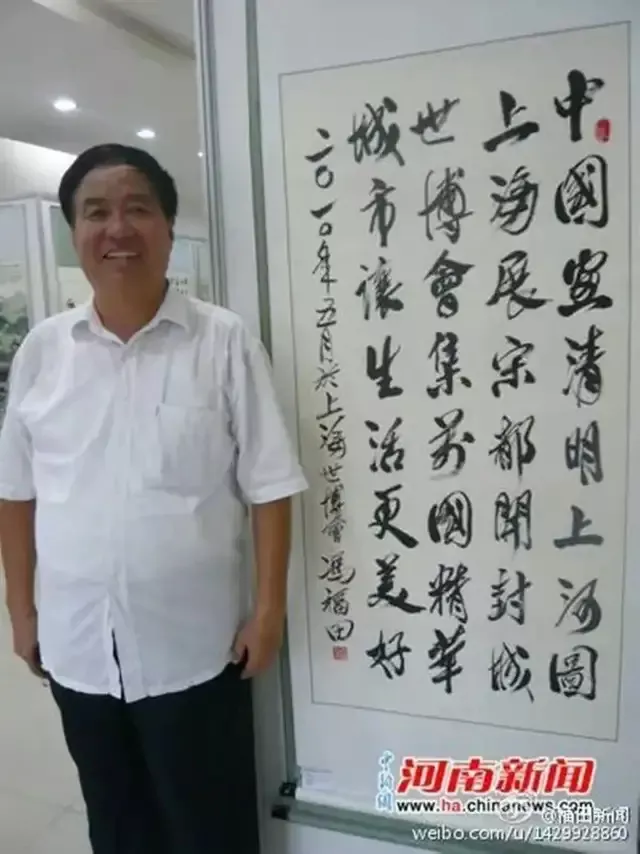 中國清明上河圖
上海展宋都開封城
世博會集萬國精華
城市讓生活更美好
二〇一〇年五月於上海世博會 馮福田
中新網
河南新闻
www.ha.chinanews.com
@福田新闻
weibo.com/u/1429928860